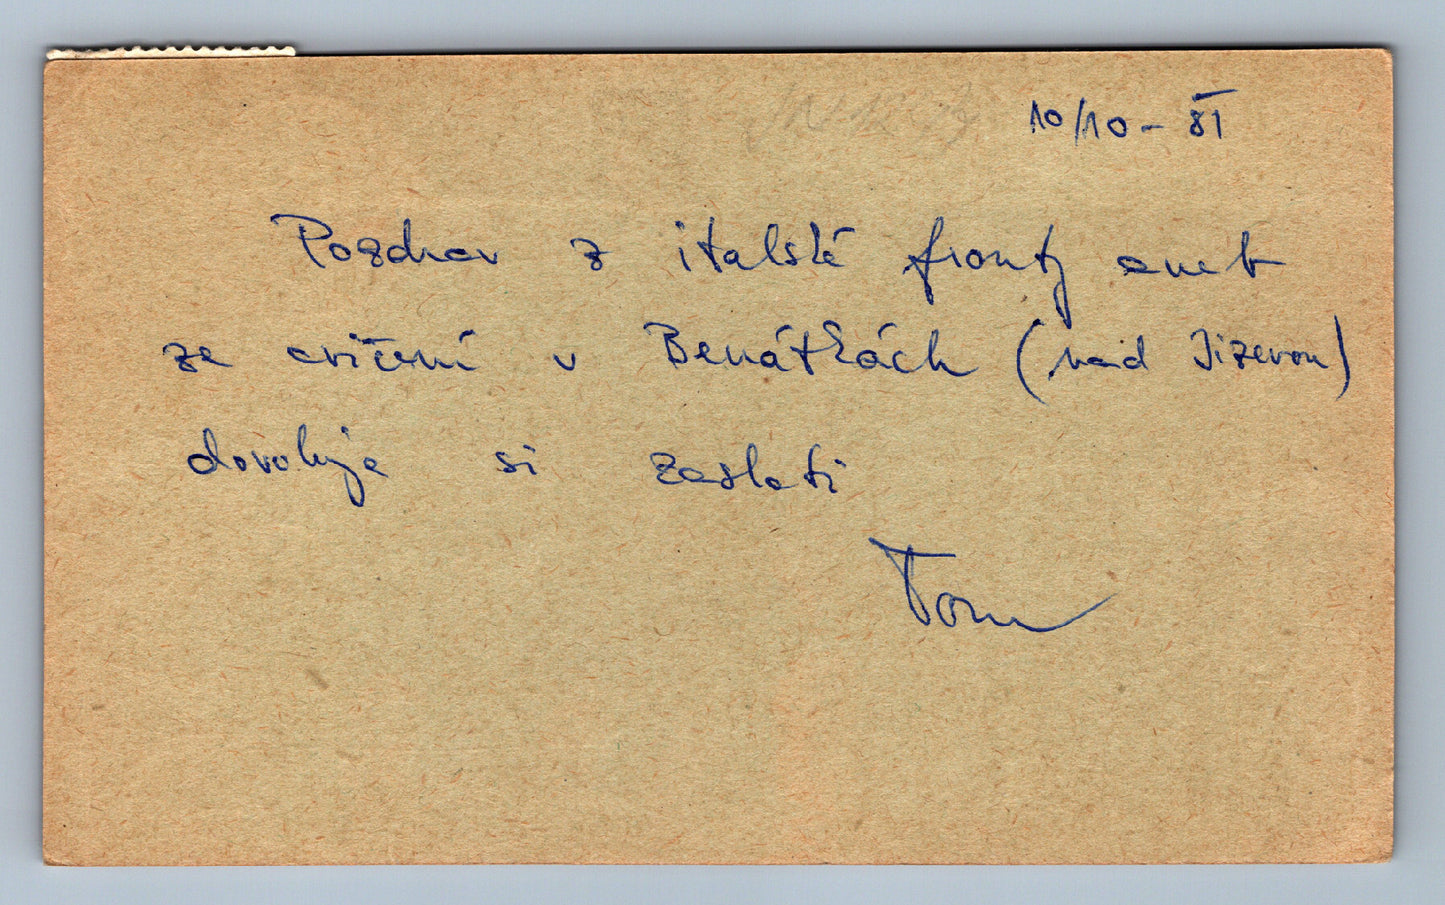 10/10 - 81
Pozdrav z italské fronty aneb
ze cvičení v Benátkách (nad Jizerou)
dovoluje si zaslati
Tom